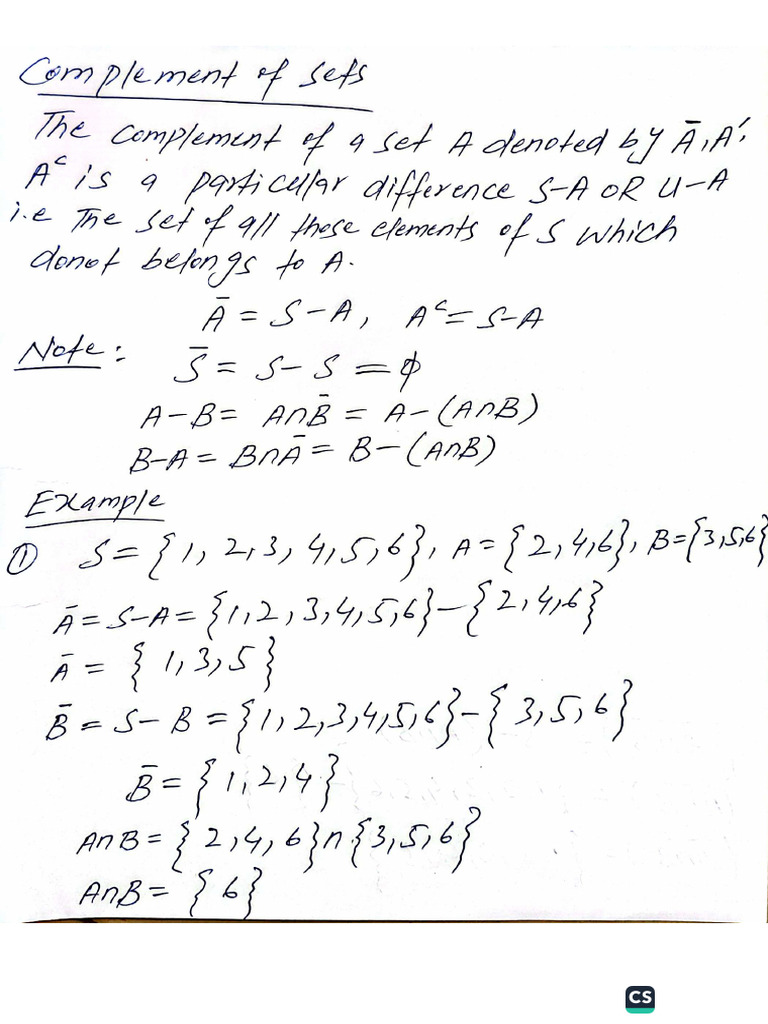 Complement of sets
The complement of a set A denoted by Ā, A′,
Aᶜ is a particular difference S-A OR U-A
i.e The set of all those elements of S which
donot belongs to A.
Ā = S-A, Aᶜ = S-A
Note: S̄ = S-S = ϕ
A-B = A∩B̄ = A-(A∩B)
B-A = B∩Ā = B-(A∩B)
Example
① S = {1, 2, 3, 4, 5, 6}, A = {2, 4, 6}, B = {3, 5, 6}
Ā = S-A = {1, 2, 3, 4, 5, 6} - {2, 4, 6}
Ā = {1, 3, 5}
B̄ = S-B = {1, 2, 3, 4, 5, 6} - {3, 5, 6}
B̄ = {1, 2, 4}
A∩B = {2, 4, 6} ∩ {3, 5, 6}
A∩B = {6}
CS